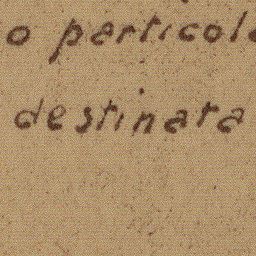 o particola
destinata